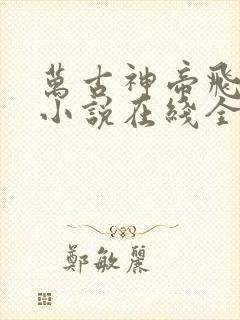 萬古神帝飛
小說在綫全
鄭敏麗